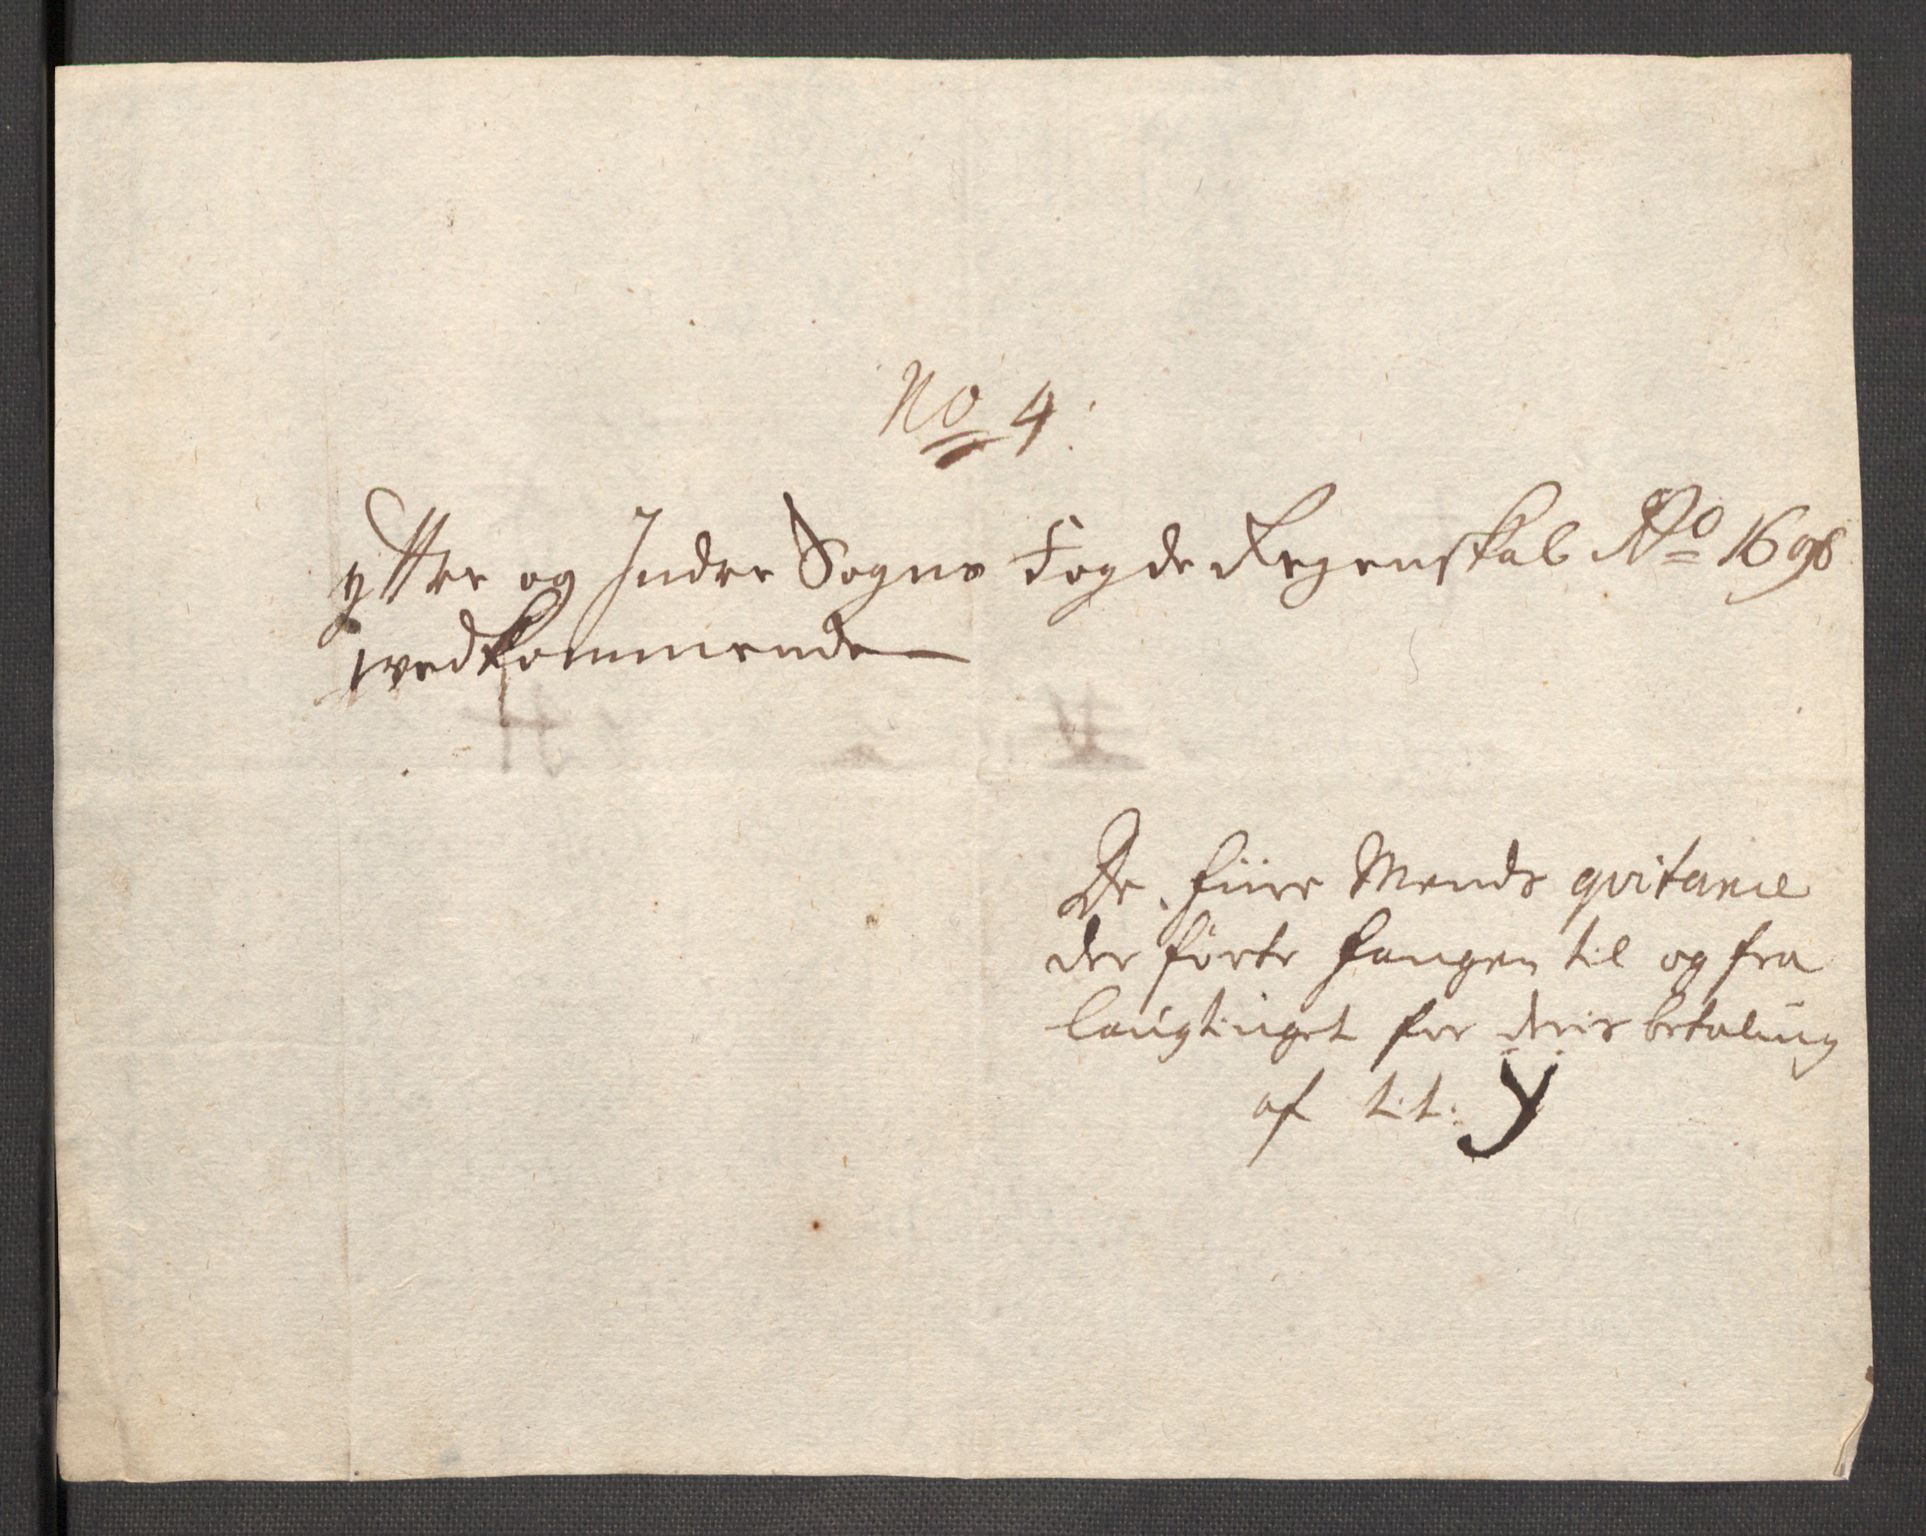 No 4.
Yttre og Indre Sogns Fogde Regenskab Ao 1698
wedkommende
De fiire Mends qvitancie
der førte fangen til og fra
laugtinget for deris betaling
af t.t. y